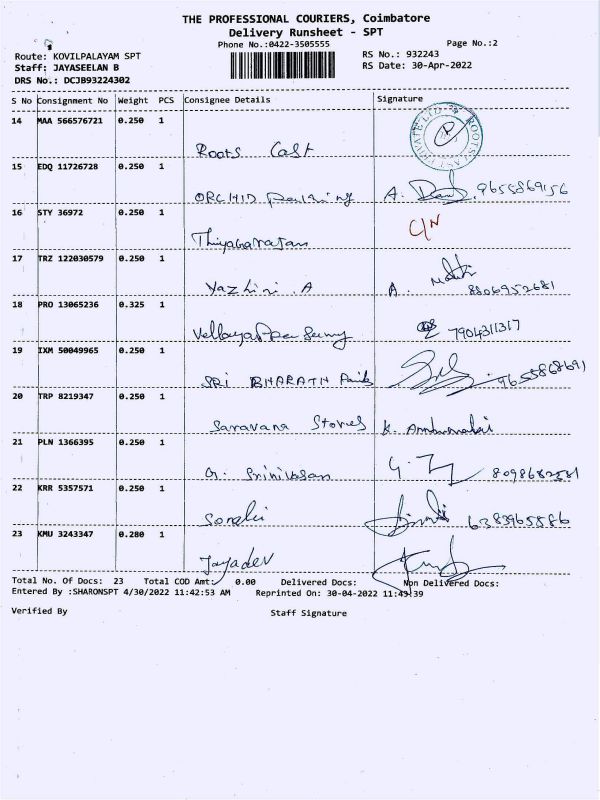 THE PROFESSIONAL COURIERS, Coimbatore
Delivery Runsheet - SPT
Phone No.:0422-3505555 Page No.:2
Route: KOVILPALAYAM SPT RS No.: 932243
Staff: JAYASEELAN B RS Date: 30-Apr-2022
DRS No.: DCJB93224302
S No Consignment No Weight PCS Consignee Details Signature
14 MAA 566576721 0.250 1
Roots Cast
15 EDQ 11726728 0.250 1
ORCHID A.
16 STY 36972 0.250 1 C/N
Thiyagarajan
17 TRZ 122030579 0.250 1
Yazhini .A A. 8806952681
18 PRO 13065236 0.325 1
7904311317
19 IXM 50049965 0.250 1
SRI BHARATH
20 TRP 8219347 0.250 1
Saravana Stores K.
21 PLN 1366395 0.250 1
G. Srinivasan
22 KRR 5357571 0.250 1
6383965886
23 KMU 3243347 0.280 1
Jayadev
Total No. Of Docs: 23 Total COD Amt: 0.00 Delivered Docs: Non Delivered Docs:
Entered By :SHARONSPT 4/30/2022 11:42:53 AM Reprinted On: 30-04-2022 11:43:39
Verified By Staff Signature